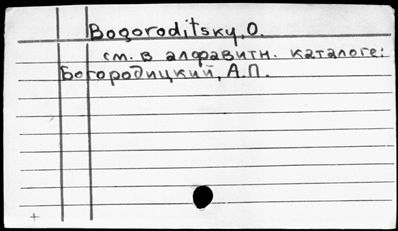 Bogoroditsky, O.
см. в алфавитн. каталоге:
Богородицкий, А.П.